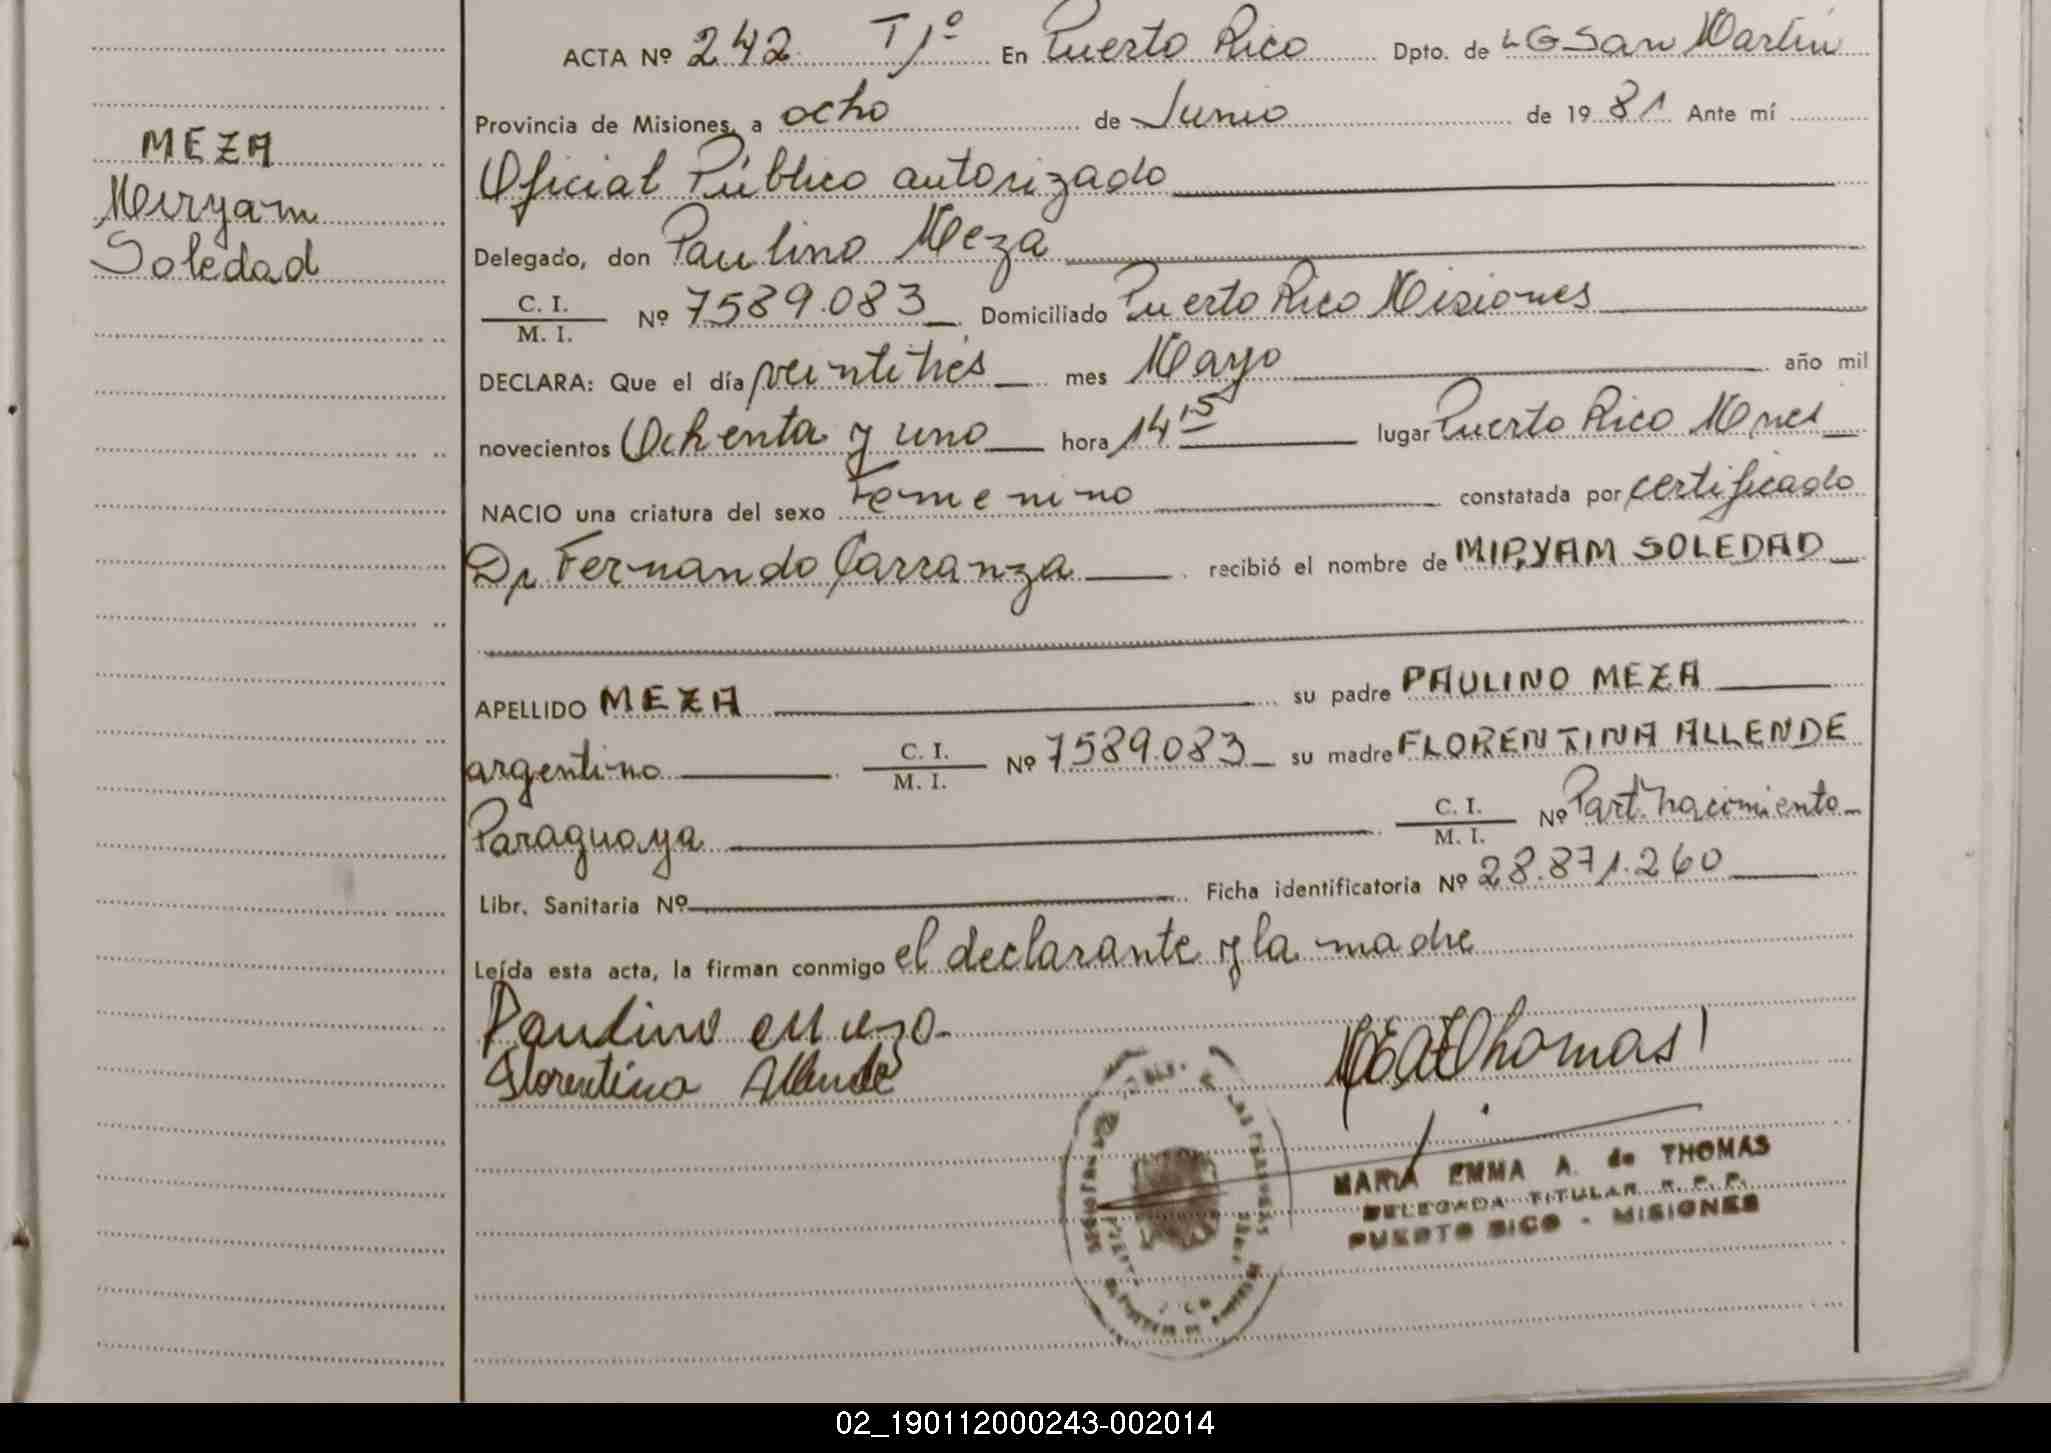 ACTA Nº 242 Tº1º En Puerto Rico Dpto. de LG San Martín
Provincia de Misiones, a ocho de Junio de 1981 Ante mí
MEZA
Miryam
Soledad
Oficial Público autorizado
Delegado, don Paulino Meza
C. I.
M. I. Nº 7589.083 Domiciliado Puerto Rico Misiones
DECLARA: Que el día veintitrés mes Mayo año mil
novecientos Ochenta y uno hora 14 15 lugar Puerto Rico Mnes
NACIO una criatura del sexo Femenino constatada por certificado
Dr Fernando Carranza recibió el nombre de MIRYAM SOLEDAD
APELLIDO MEZA su padre PAULINO MEZA
argentino C. I.
M. I. Nº 7589.083 su madre FLORENTINA ALLENDE
Paraguaya C. I.
M. I. Nº Part. Nacimiento
Libr. Sanitaria Nº Ficha identificatoria Nº 28.871.260
Leída esta acta, la firman conmigo el declarante y la madre
Paulino Meza
Florentina Allende
MARIA EMMA A. de THOMAS
DELEGADA TITULAR R. P. P.
PUERTO RICO - MISIONES
02_190112000243-002014